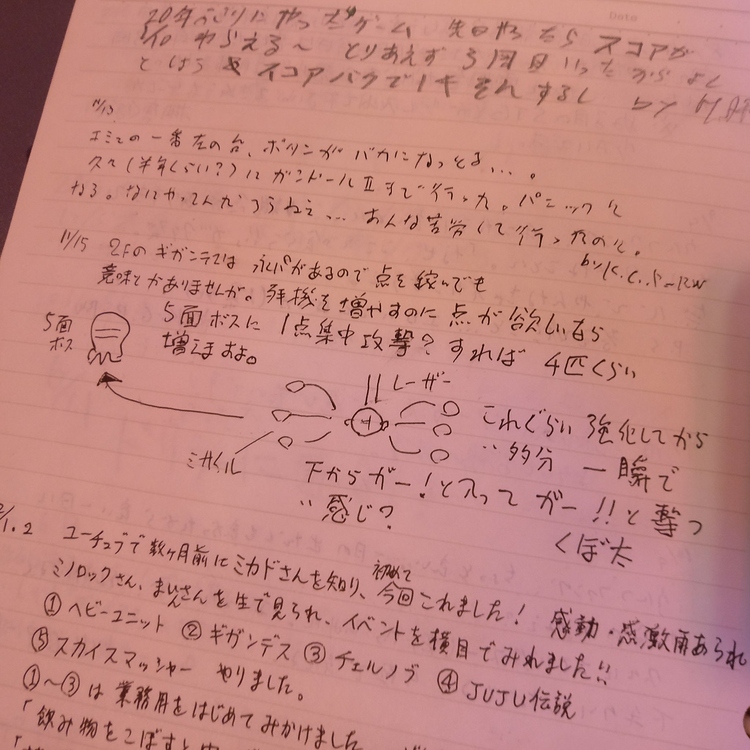 20年ぶりにやったゲーム 先日やったら スコアが
やらえる〜 とりあえず 3周目いったからよし
スコア それするし by
11/13
の一番左の台、ボタンが バカになっとる…。
久々(半年くらい?)に ガンドールⅡまで行った。パニック
なる。なにやってんだろうねえ… あんな苦労して行ったのに。
by K.C.S-RW
11/15 2Fのギガンデスは 永パがあるので点を縮んでも
意味とかありませんが。残機を増やすのに 点が欲しいなら
5面ボスに 1点集中攻撃? すれば 4匹くらい
増えますよ。
5面
ボス
レーザー
ミサイル
これぐらい 強化してから
多分 一瞬で
下からガー!と入って ガー!!と撃つ
感じ?
くぼ太
1.2 ユーチュブで 数ヶ月前に ミカドさんを知り、初めて今回これました! 感動・感激雨あられ
ミノロックさん、まいさんを生で見られ、イベントを横目でみれました!!
① ヘビーユニット ② ギガンデス ③ チェルノブ ④ JUJU伝説
⑤ スカイスマッシャー やりました。
①〜③は 業務用をはじめてみかけました
「飲み物をこぼすと